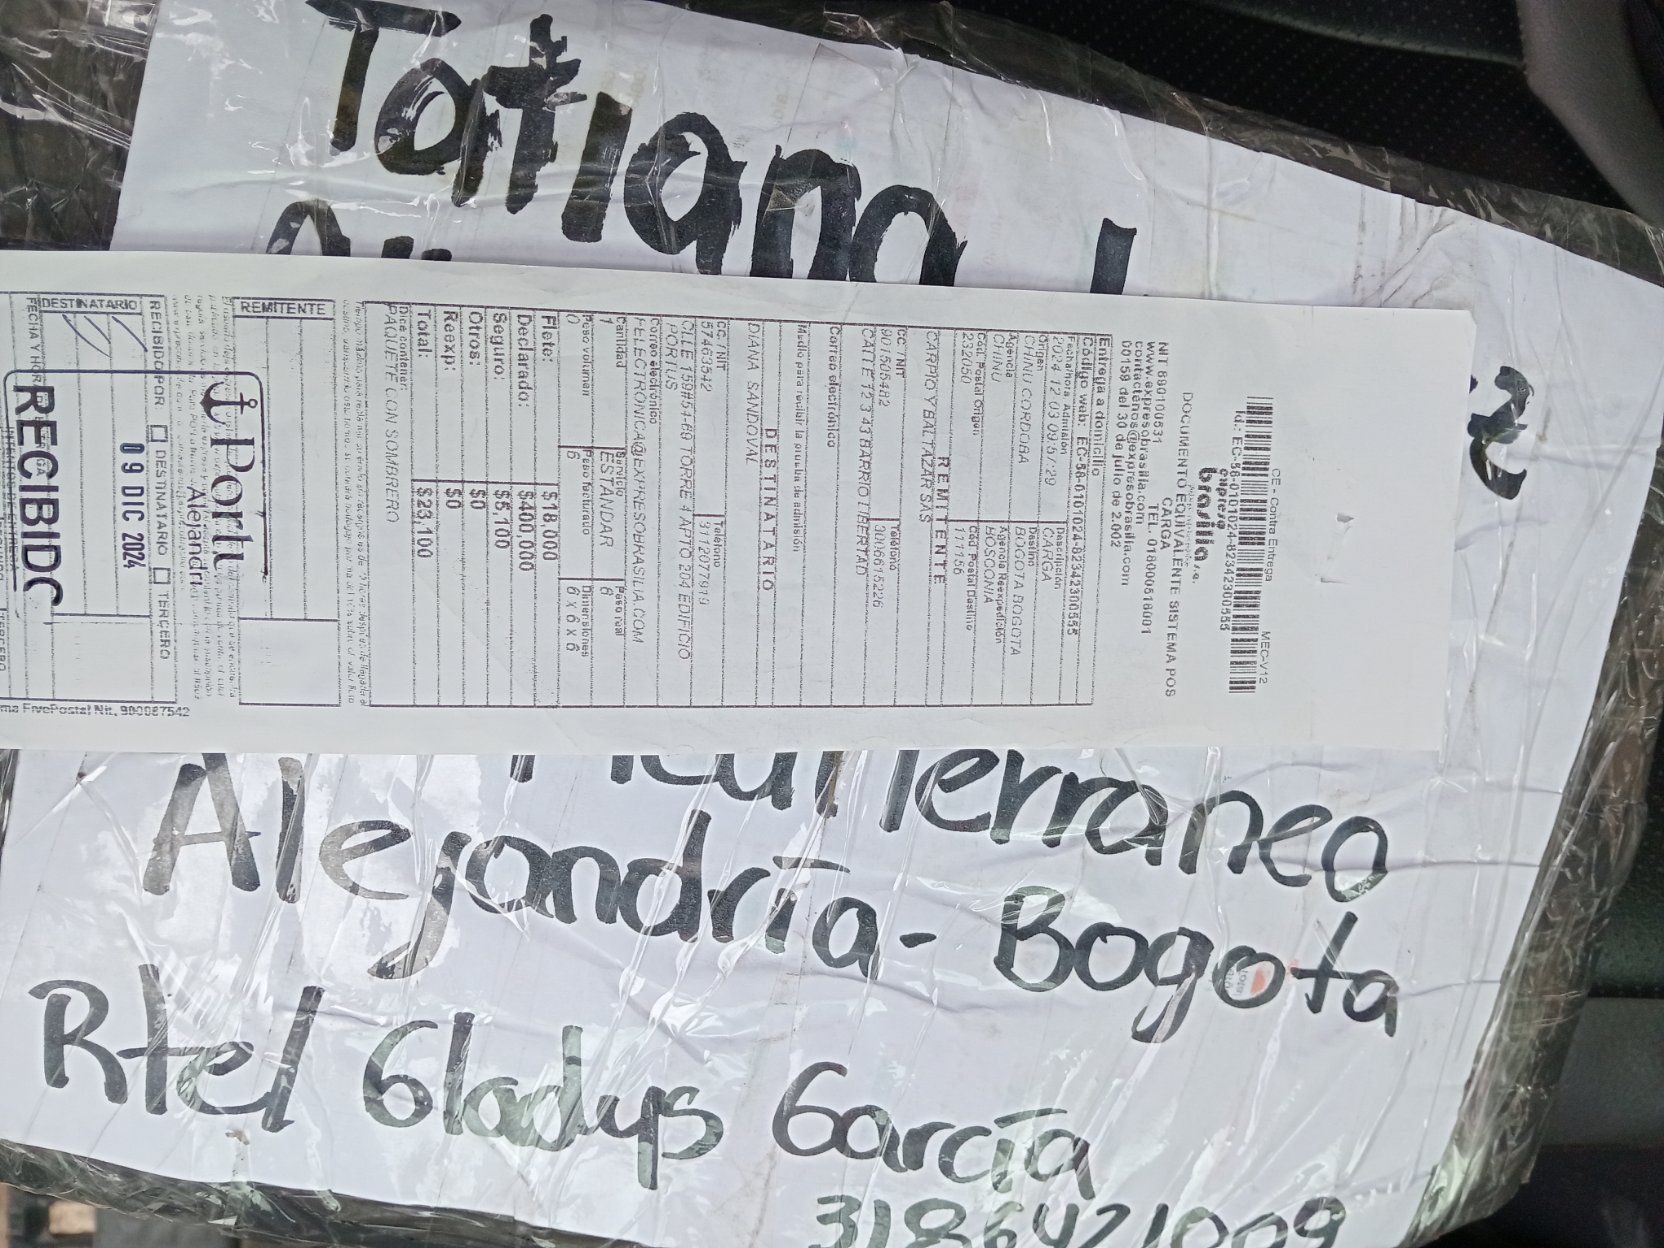 Tatiana
CE - Contra Entrega
MEC-V12
Id.: EC-58-0101024-82342300555
expreso
brasilia s.a.
DOCUMENTO EQUIVALENTE SISTEMA POS
CARGA
NIT 890100531 TEL. 018000518001
www.expresobrasilia.com
contactenos@expresobrasilia.com
00159 del 30 de julio de 2.002
Entrega a domicilio
Código web: EC-58-0101024-82342300555
Fecha/hora Admisión
Descripción
2024 12 03 09:57:29
CARGA
Origen
Destino
CHINU CORDOBA
BOGOTA BOGOTA
Agencia
Agencia Reexpedición
CHINU
BOSCONIA
Cód. Postal Origen
Cód. Postal Destino
232050
111156
REMITENTE
CARPIO Y BALTAZAR SAS
CC. / NIT
Teléfono
901505482
3006615226
CALLE 12 3 43 BARRIO LIBERTAD
Correo electrónico
Medio para recibir la prueba de admisión
DESTINATARIO
DIANA SANDOVAL
CC. / NIT
Teléfono
57463542
3112077919
CLLE 159#54-69 TORRE 4 APTO 204 EDIFICIO
PORTUS
Correo electrónico
FELECTRONICA@EXPRESOBRASILIA.COM
Cantidad
Servicio
Peso real
1
ESTÁNDAR
6
Peso volumen
Peso facturado
Dimensiones
0
6
6 x 6 x 6
Flete: $18,000
Declarado: $400,000
Seguro: $5,100
Otros: $0
Reexp: $0
Total: $23,100
Dice contener:
PAQUETE CON SOMBRERO
REMITENTE
RECIBIDO POR DESTINATARIO TERCERO
DESTINATARIO
FECHA Y HORA
Portu
Alejandría
09 DIC 2024
RECIBIDO
FivePostal Nit. 900087542
Mediterraneo
Alejandría - Bogota
Rtel Gladys García
3186421009